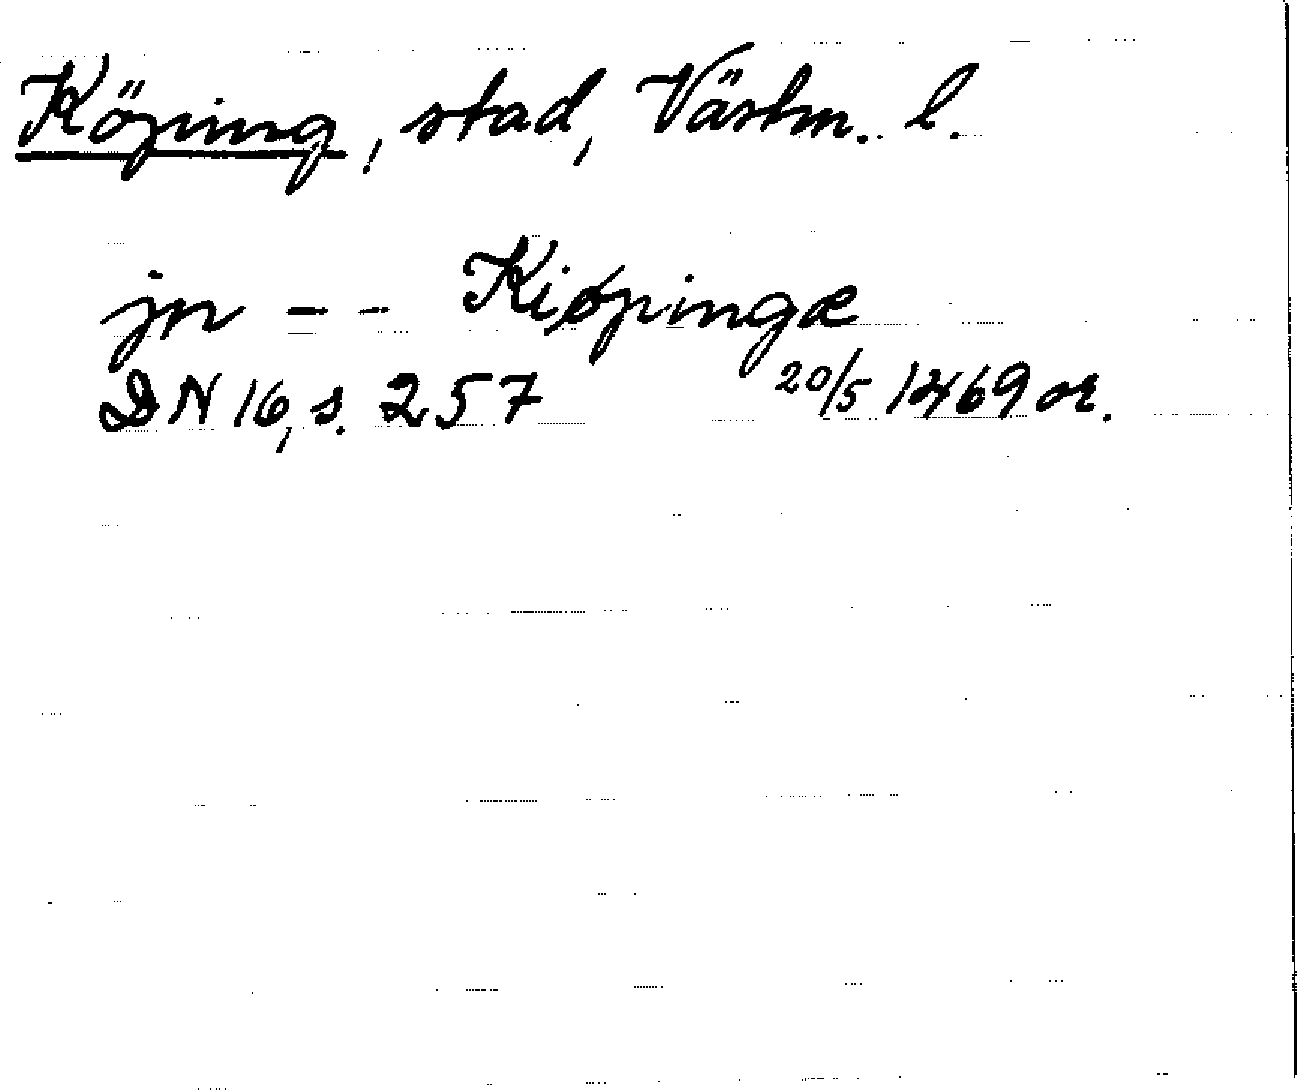 Köping, stad, Västm. l.
jn - - Kiøpingæ
DN 16, s. 257 20/5 1469 or.